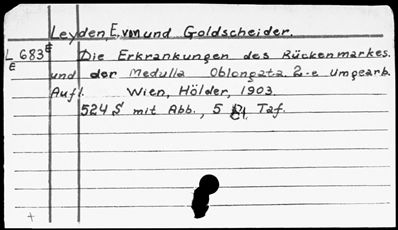 Leyden, E. von und Goldscheider.
L 683 E Die Erkrankungen des Rückenmarkes
E und der Medulla Oblongata. 2-e Umgearb.
Aufl. Wien, Hölder, 1903.
524 S mit Abb., 5 Taf.